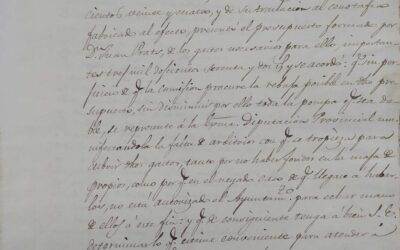 cientos veinte y cuatro, y de su traslacion al cenotafio
fabricado al efecto, presentó el presupuesto formado por
D. Juan Prats, de los gastos necesarios para ello, importan-
tes tres mil doscientos setenta y dos y se acordó: q.e sin per-
juicio de q.e la comision procure la rebaja posible en dho pre-
supuesto, sin disminuir por ello toda la pompa q.e sea da-
ble, se represente á la Exma. Diputacion Provincial ma-
nifestandola la falta de arbitrios con q.e se tropieza para
cubrir dhos gastos, tanto por no haber fondos en la masa de
propios, como por q.e en el negado caso de q.e llegase a haber-
los, no está autorizado el Ayuntam.to para echar mano
de ellos á este fin; y q.e de consiguiente tenga á bien S. E.
determinar lo q.e estime conveniente para atender á